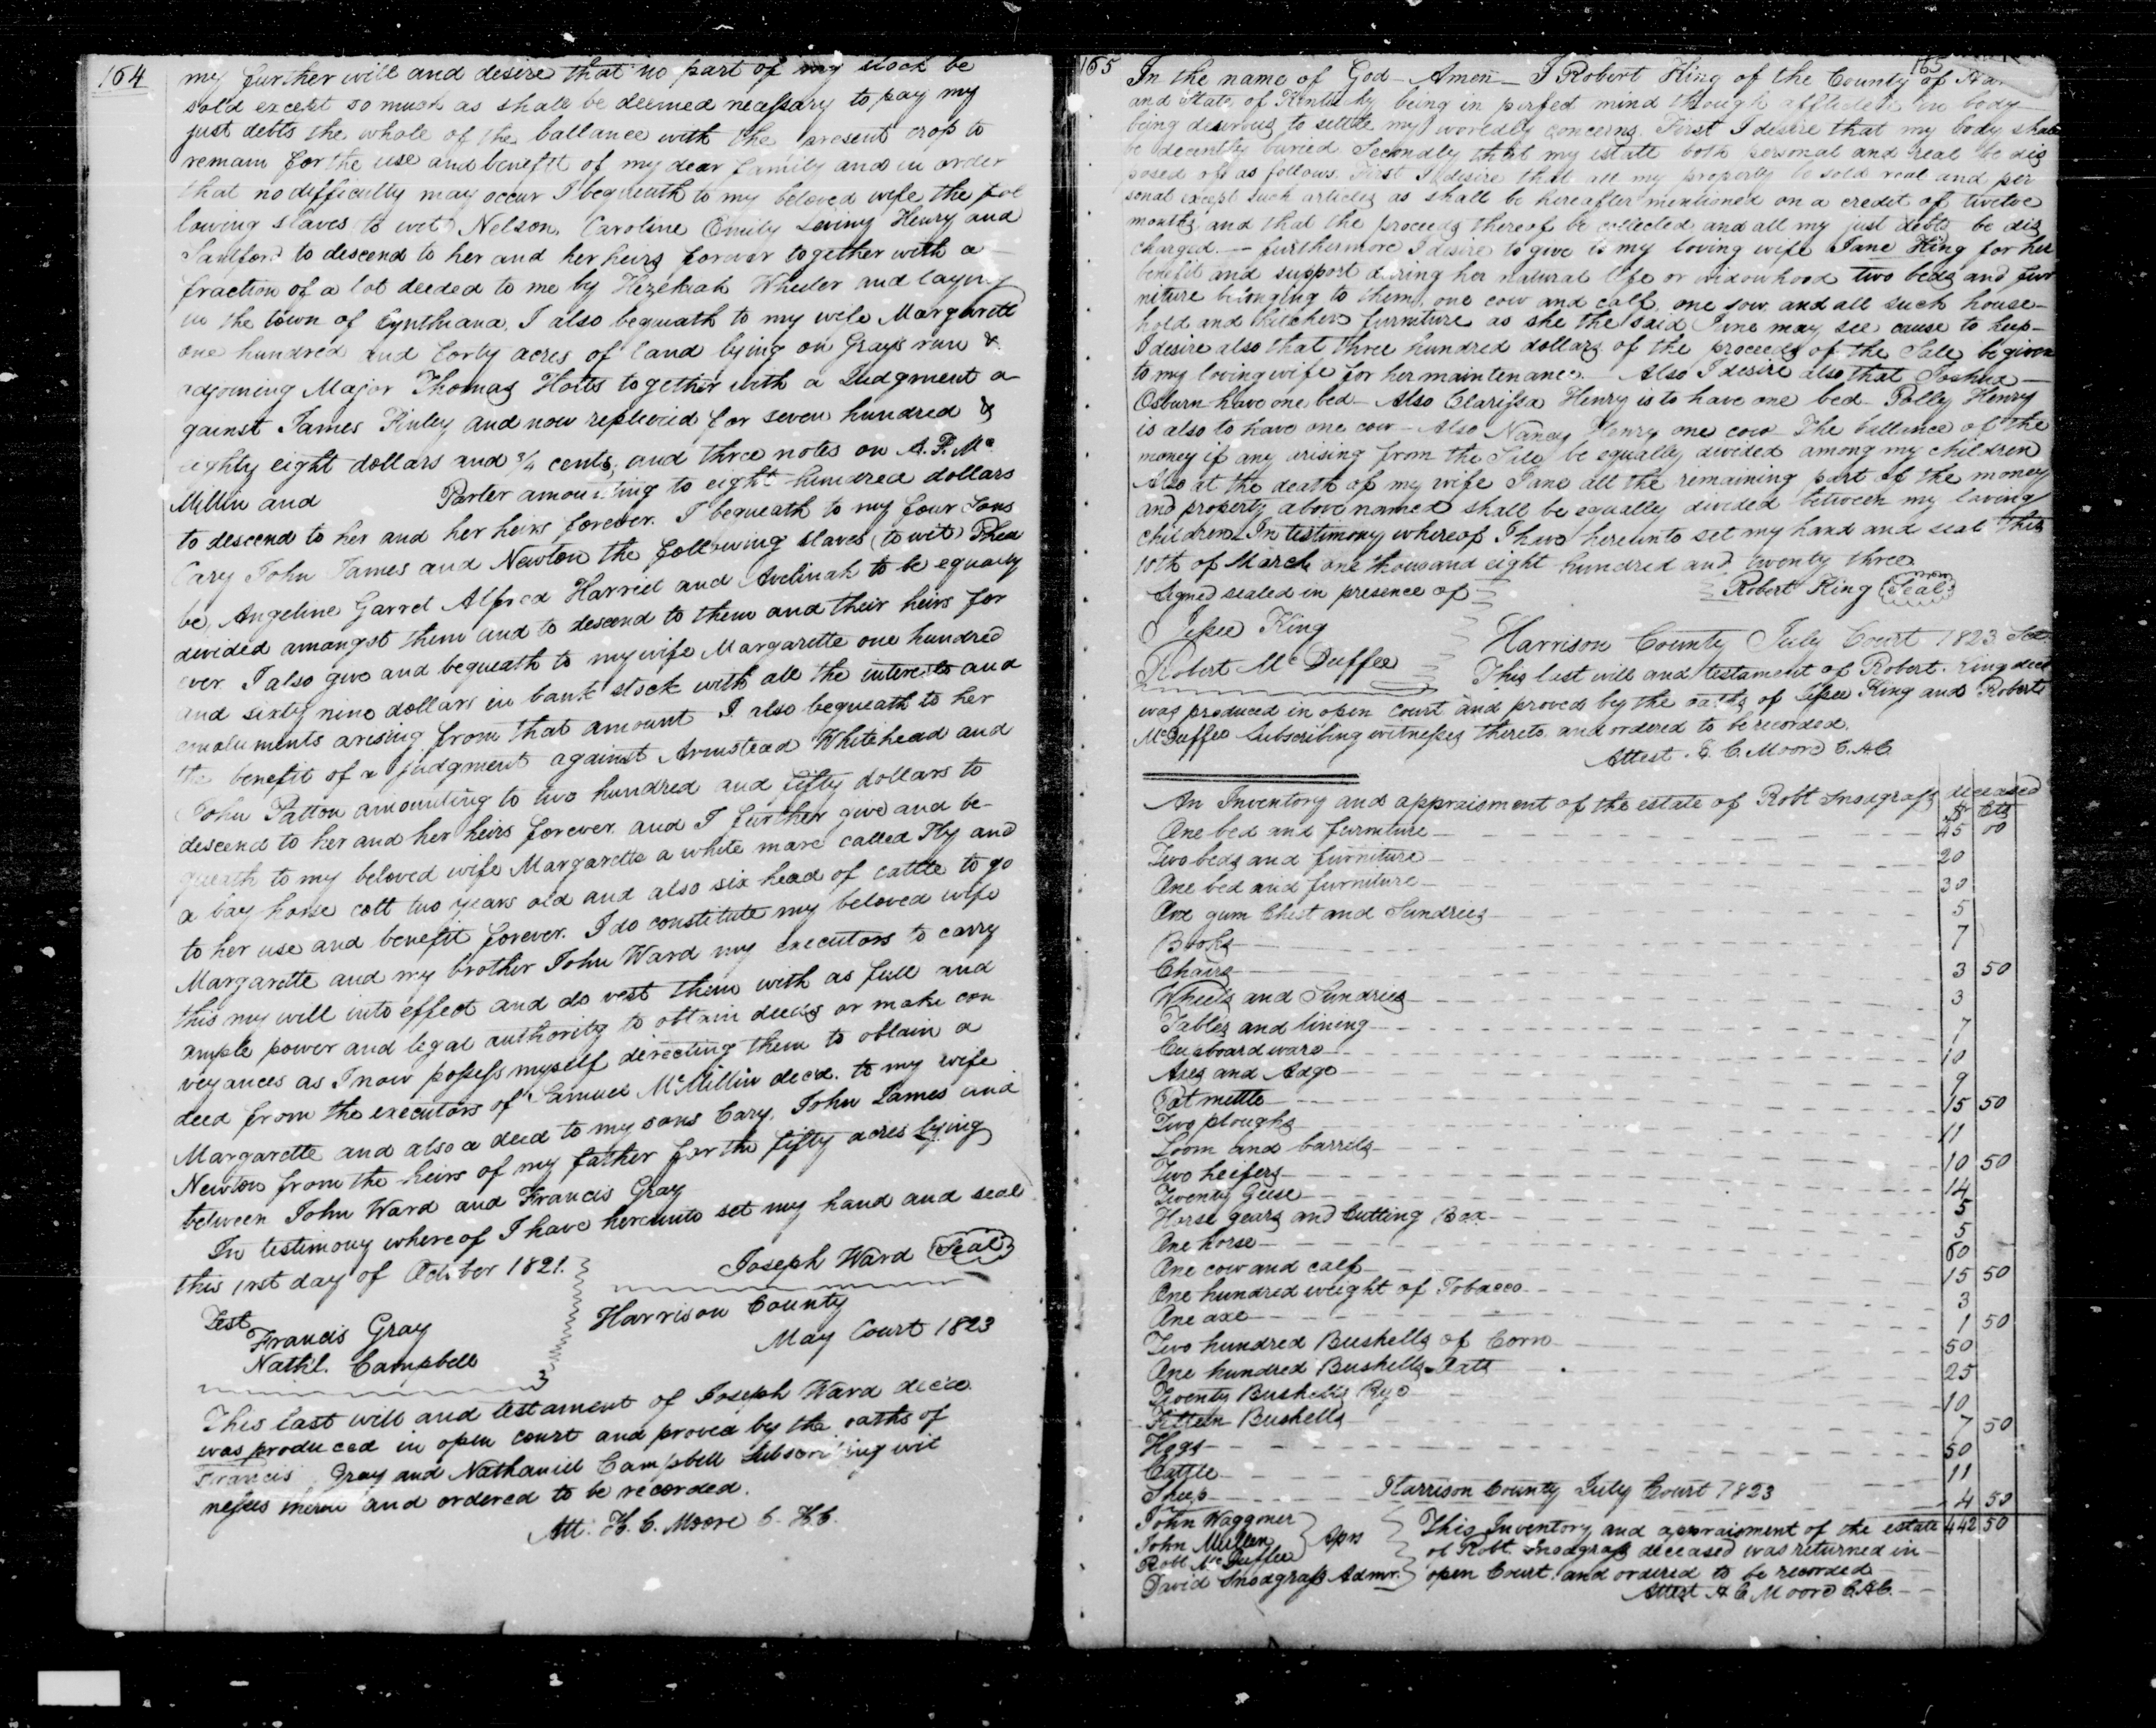 164
my further will and desire that no part of my stock be
sold except so much as shall be deemed necessary to pay my
just debts the whole of the ballance with the present crop to
remain for the use and benefit of my dear family and in order
that no difficulty may occur I bequeath to my beloved wife the fol
lowing slaves to wit Nelson, Caroline Emily Henry and
to descend to her and her heirs forever together with a
fraction of a lot deeded to me by Hezekiah Wheeler and laying
in the town of Cynthiana, I also bequeath to my wife Margarett
one hundred and forty acres of land lying on Grays run &
adjoining Major Thomas together with a Judgment a
gainst James Finley and now replevied for seven hundred &
eighty eight dollars and 3/4 cents, and three notes on A. P. Mc
Millin and Porter amounting to eight hundred dollars
to descend to her and her heirs forever. I bequeath to my four Sons
Cary John James and Newton the following slaves (to wit) Phea
be, Angeline Garret Alfred Harriet and Avelinah to be equally
divided amongst them and to descend to them and their heirs for
ever I also give and bequeath to my wife Margarette one hundred
and sixty nine dollars in bank stock with all the interests and
emoluments arising from that amount I also bequeath to her
the benefit of a judgment against Armstead Whitehead and
John Patton amounting to two hundred and fifty dollars to
descend to her and her heirs forever and I further give and be-
queath to my beloved wife Margarette a white mare called Fly and
a bay horse colt two years old and also six head of cattle to go
to her use and benefit forever. I do constitute my beloved wife
Margarette and my brother John Ward my executors to carry
this my will into effect and do vest them with as full and
ample power and legal authority to obtain deeds or make con
veyances as I now possess myself directing them to obtain a
deed from the executors of Samuel McMillin decd. to my wife
Margarette and also a deed to my sons Cary, John James and
Newton from the heirs of my father for the fifty acres lying
between John Ward and Francis Gray
In testimony whereof I have hereunto set my hand and seal
this 1rst day of October 1821.
Joseph Ward Seal
Test
Francis Gray
Nathl. Campbell
Harrison County
May Court 1823
This last will and testament of Joseph Ward decd
was produced in open court and proved by the oaths of
Francis Gray and Nathaniel Campbell Subscribing wit
nesses thereto and ordered to be recorded.
Att. H. C. Moore C. H C.
165
165
In the name of God - Amen - I Robert King of the County of Har
and State of Kentucky being in perfect mind though afflicted in body
being desirous to settle my worldly concerns. First I desire that my body shall
be decently buried Secondly that my estate both personal and real be dis
posed of as follows. First I desire that all my property be sold real and per
sonal except such articles as shall be hereafter mentioned on a credit of twelve
months and that the proceeds thereof be collected and all my just debts be dis
charged - furthermore I desire to give to my loving wife Jane King for her
benefit and support during her natural life or widowhood two beds and fur
niture belonging to them, one cow and calf, one sow, and all such house-
hold and kitchen furniture as she the said Jane may see cause to keep-
I desire also that three hundred dollars of the proceeds of the Sale be given
to my loving wife for her maintenance. Also I desire also that Joshua -
Osburn have one bed - Also Clarissa Henry is to have one bed - Polly Henry
is also to have one cow - Also Nancy Henry one cow - The ballance of the
money if any arising from the Sale be equally divided among my children
Also at the death of my wife Jane all the remaining part of the money
and property above named shall be equally divided between my loving
children In testimony whereof I have hereunto set my hand and seal this
10th of March one thousand eight hundred and twenty three
Signed sealed in presence of
Robert King Seal
Jesse King
Robert McDuffee
Harrison County July Court 1823 Sct
This last will and testament of Robert King decd
was produced in open court and proved by the oaths of Jesse King and Robert
McDuffee Subscribing witnesses thereto and ordered to be recorded.
Attest. H. C. Moore C.H.C
An Inventory and appraisment of the estate of Robt Snodgrass deceased
$ Cts
One bed and furniture 45 00
Two beds and furniture 20
One bed and furniture 30
One gum Chest and Sundries 5
Books 7
Chairs 3 50
Wheels and Sundries 3
Tables and lining 7
Cupboard ware 10
Axes and Adge 9
Pot mettle 15 50
Two ploughs 11
Loom and barrels 10 50
Two heifers 14
Twenty Geese 5
Horse gears and Cutting Box 5
One horse 60
One cow and calf 15 50
One hundred weight of Tobacco 3
One axe 1 50
Two hundred Bushells of Corn 50
One hundred Bushells Oats 25
Twenty Bushells Rye 10
Fifteen Bushells 7 50
Hogs 50
Cattle 11
Sheep 4 50
442 50
John Waggoner
John Mullen
Robt McDuffee
Aprs
David Snodgrass Admr.
Harrison County July Court 1823
This Inventory and appraisment of the estate
of Robt. Snodgrass deceased was returned in
open Court and ordered to be recorded
Attest H C Moore C.H.C.